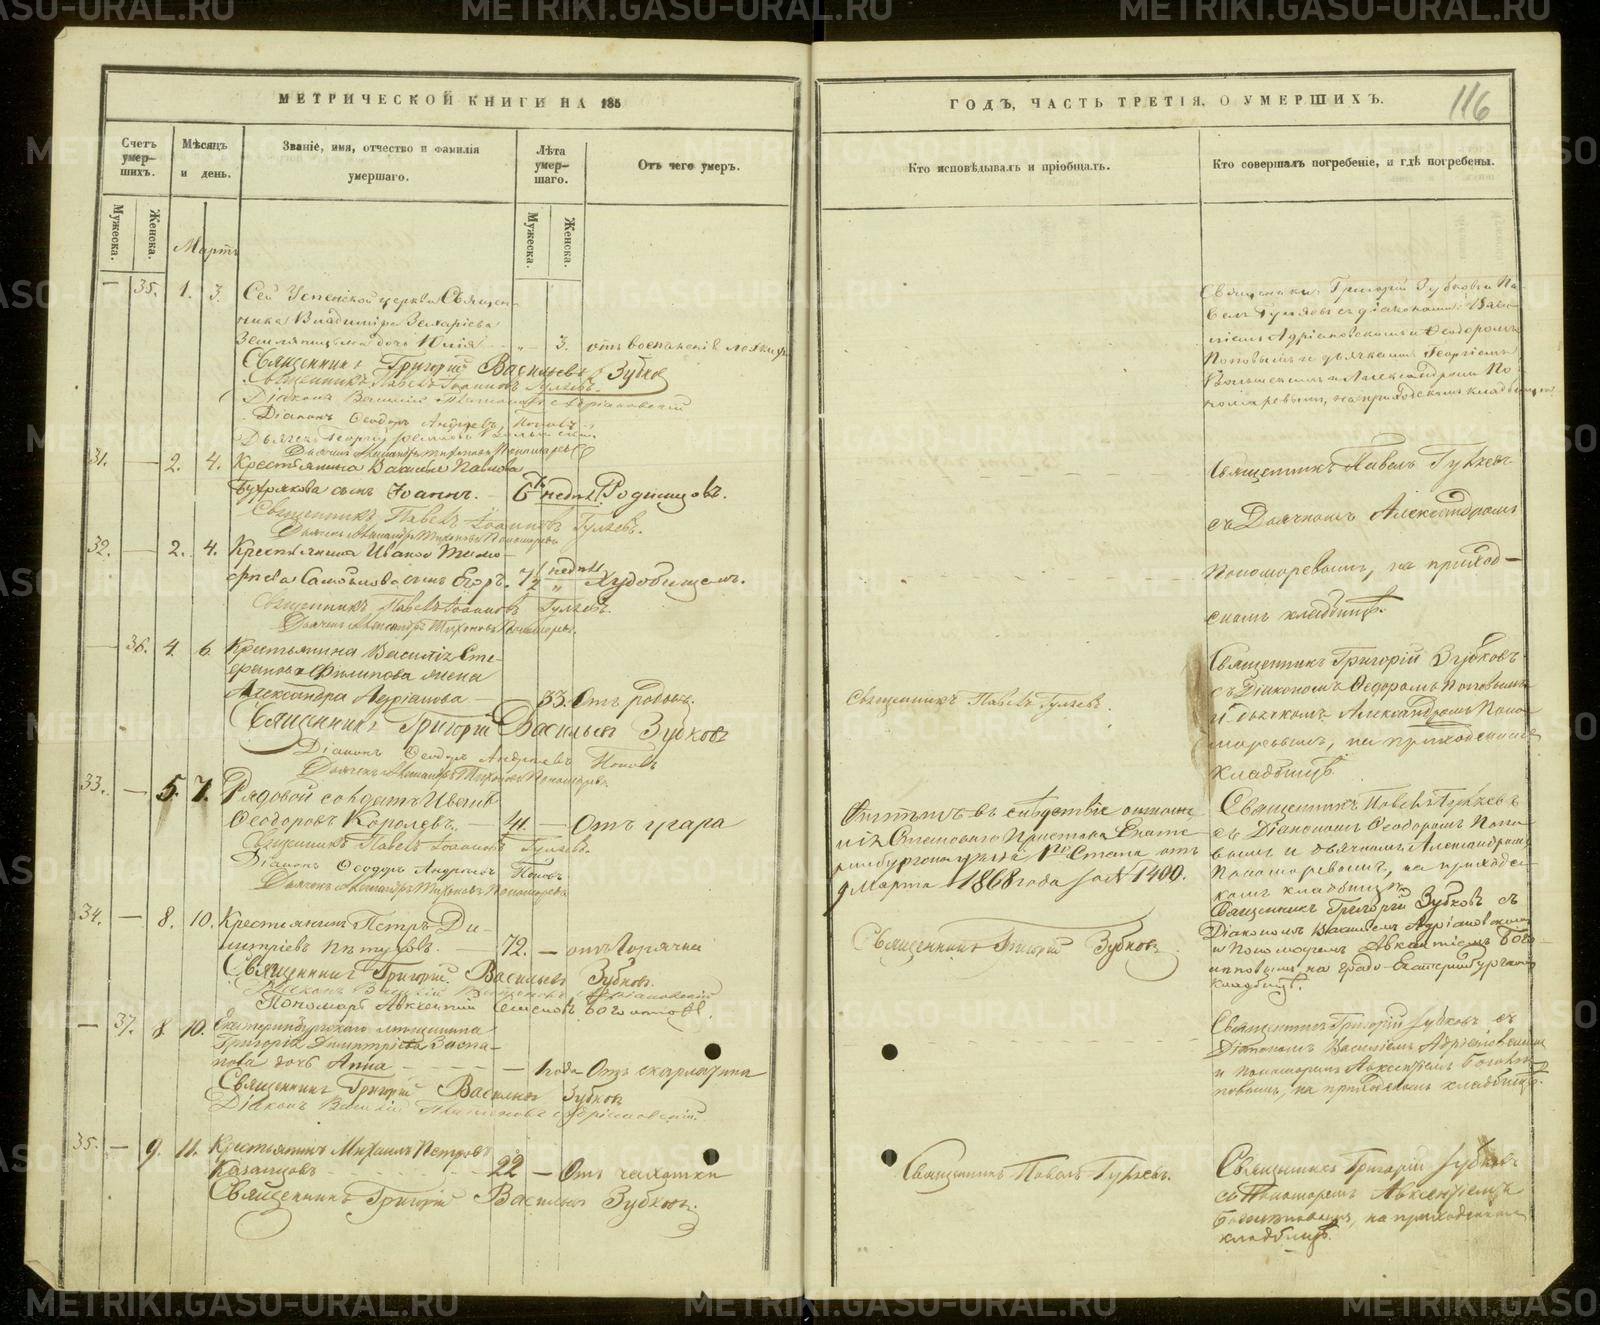 МЕТРИЧЕСКОЙ КНИГИ НА 185
Счетъ умер-шихъ.
Мѣсяцъ и день.
Званіе, имя, отчество и фамилія умершаго.
Лѣта умер-шаго.
Отъ чего умеръ.
Мужеска.
Женска.
Мужеска.
Женска.
Мартъ
— 35. 1. 3. Сей Успенской церкви Священ-
ника Владиміра Захаріева
дочь Юлія — „ 3. отъ воспаленія
Священникъ Григорій Васильевъ Зубковъ
Священникъ Павелъ Іоанновъ Гуляевъ.
Діаконъ Василій Адріановскій
Діаконъ Ѳеодоръ Андреевъ Поповъ
Дьячекъ Георгій
Дьячекъ Александръ Тихоновъ Пономаревъ
31. — 2. 4. Крестьянина Василья Павлова
сынъ Іоаннъ. — 6 недѣль Родимцовъ.
Священникъ Павелъ Іоанновъ Гуляевъ.
Дьячекъ Александръ Тихоновъ Пономаревъ
32. — 2. 4. Крестьянина Ивана Тимо-
феева Самойлова сынъ Егоръ. 7½ недѣль Худобищемъ.
Священникъ Павелъ Іоанновъ Гуляевъ.
Дьячекъ Александръ Тихоновъ Пономаревъ.
— 36. 4. 6. Крестьянина Василія Сте-
фанова Филипова жена
Александра Андріанова — 33. Отъ родовъ.
Священникъ Григорій Васильевъ Зубковъ
Діаконъ Ѳеодоръ Андреевъ Поповъ
Дьячекъ Александръ Тихоновъ Пономаревъ
33. — 5. 7. Рядовой солдатъ Иванъ
Ѳеодоровъ Королевъ. — 41. — Отъ угара
Священникъ Павелъ Іоанновъ Гуляевъ
Діаконъ Ѳеодоръ Андреевъ Поповъ
Дьячекъ Александръ Тихоновъ Пономаревъ
34. — 8. 10. Крестьянинъ Петръ Ди-
митріевъ Пѣтуховъ. — 72. — отъ горячки
Священникъ Григорій Васильевъ Зубковъ.
Діаконъ Василій Адріановскій
Пономарь Авксентій Семеновъ Боголѣповъ.
— 37. 8. 10. Екатеринбургскаго мѣщанина
Григорія Димитріева
дочь Анна — 1 года Отъ скарлатина
Священникъ Григорій Васильевъ Зубковъ
Діаконъ Василій Адріановскій.
35. — 9. 11. Крестьянинъ Михаилъ Петровъ
Казанцовъ 22 — Отъ чахотки
Священникъ Григорій Васильевъ Зубковъ.
ГОДЪ, ЧАСТЬ ТРЕТІЯ, О УМЕРШИХЪ.
116
Кто исповѣдывалъ и пріобщалъ.
Кто совершалъ погребеніе, и гдѣ погребены.
Священники Григорій Зубковъ и Па-
велъ Гуляевъ съ діаконами: Васи-
ліемъ Адріановскимъ и Ѳеодоромъ
Поповымъ и дьячками Георгіемъ
и Александромъ По-
номаревымъ, на приходскомъ кладбищѣ
Священникъ Павелъ Гуляевъ
съ Дьячкомъ Александромъ
Пономоревымъ, на приход-
скомъ кладбищѣ.
Священникъ Павелъ Гуляевъ.
Священникъ Григорій Зубковъ
съ Діакономъ Ѳедоромъ Поповымъ
и дьячкомъ Александромъ Поно-
маревымъ, на приходскомъ
кладбищѣ.
Отпѣтъ въ слѣдствіе отноше-
нія Становаго Пристава Екате-
ринбургскаго уѣзда 1го Стана отъ
9 Марта 1868 года за № 1400.
Священникъ Павелъ Гуляевъ
съ Діакономъ Ѳеодоромъ Попо-
вымъ и дьячкомъ Александромъ
Пономоревымъ, на приходс-
комъ кладбищѣ.
Священникъ Григорій Зубковъ
Священникъ Григорій Зубковъ съ
Діакономъ Василіемъ Адріановскимъ
и Пономаремъ Авксентіемъ Бого-
лѣповымъ, на градо-Екатеринбургскомъ
кладбищѣ.
Священникъ Григорій Зубковъ съ
Діакономъ Василіемъ Адріановскимъ
и Пономаремъ Авксентіемъ Боголѣ-
повымъ, на приходскомъ кладбищѣ.
Священникъ Павелъ Гуляевъ.
Священникъ Григорій Зубковъ
съ Пономаремъ Авксентіемъ
Боголѣповымъ, на приходскомъ
кладбищѣ.
METRIKI.GASO-URAL.RU